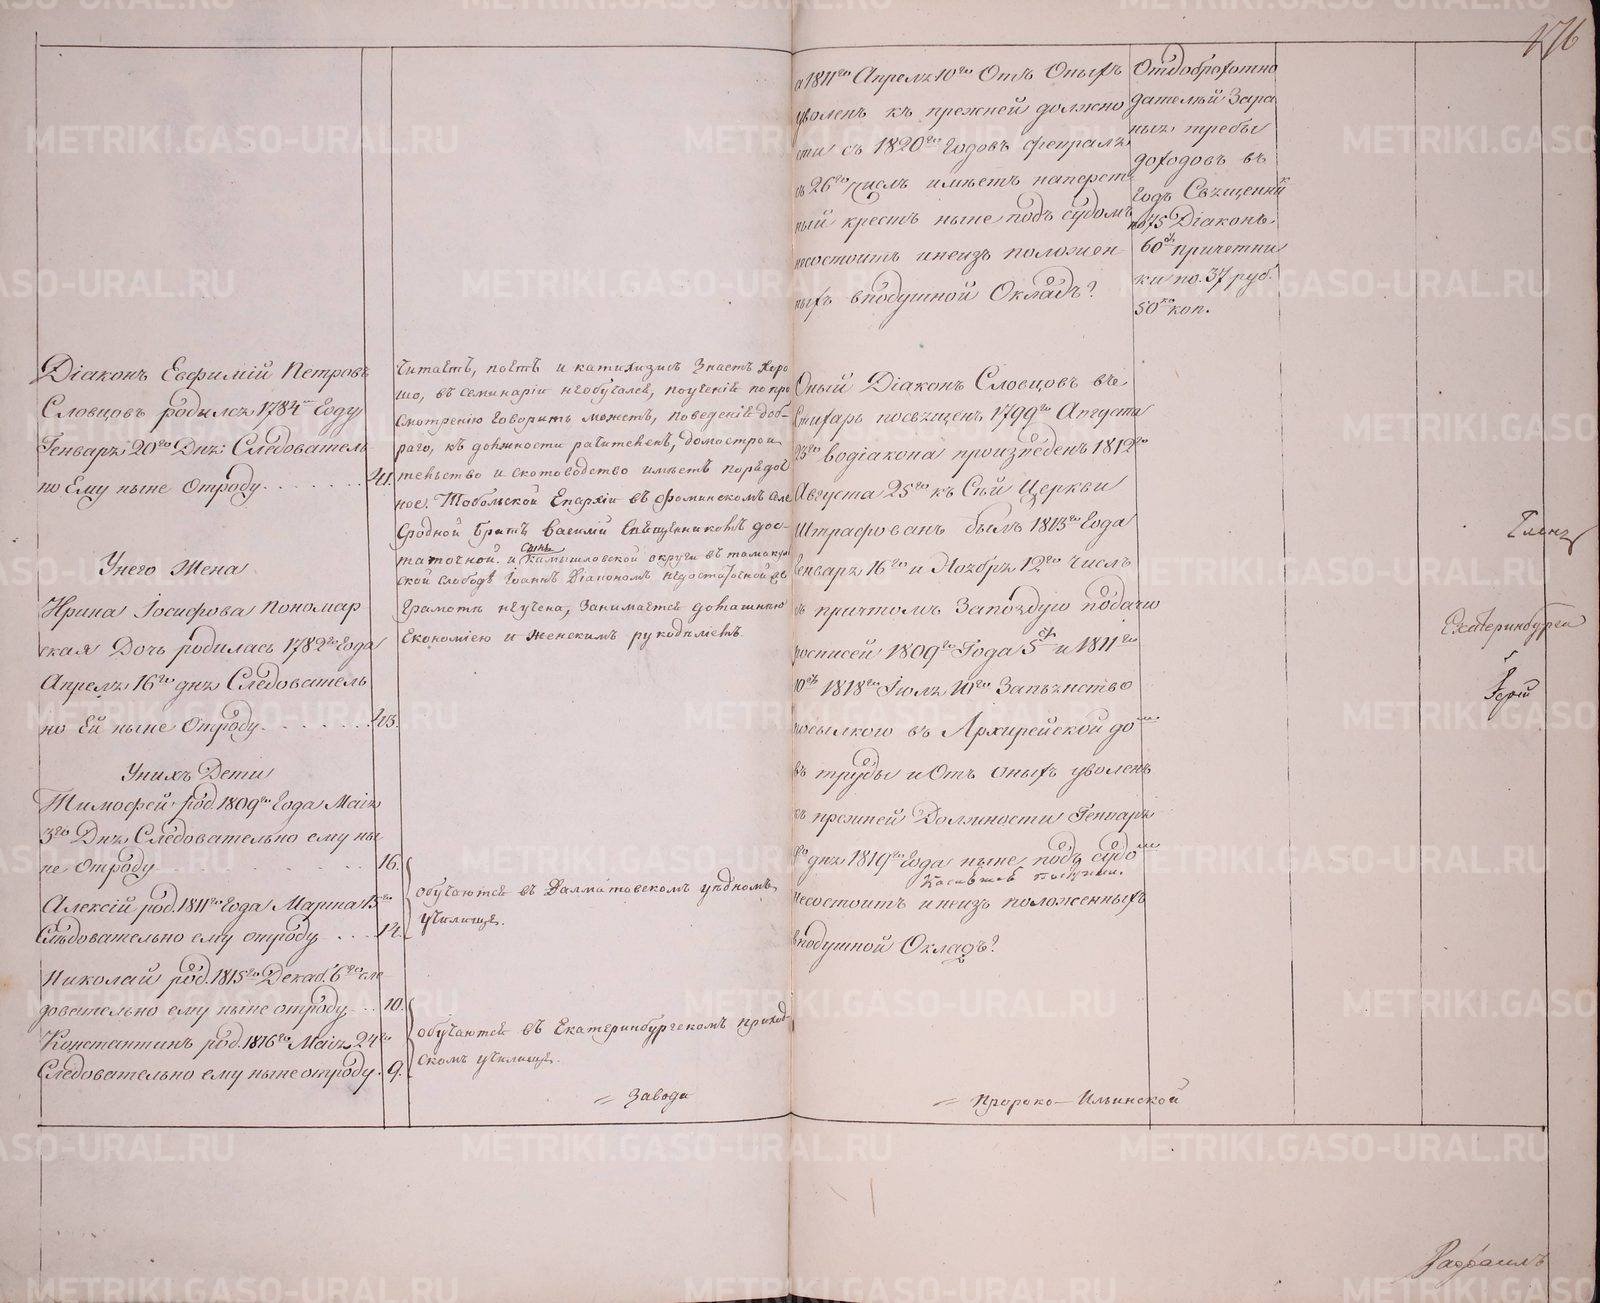 176
Діаконъ Евфимій Петровъ
Словцовъ родился 1784 Году
Генваря 20го Дня Следователь
но Ему ныне Отроду 41.
Унего Жена
Ирина Іосифова пономар
ская Дочь родилась 1782го Года
Апреля 16го дня Следователь
но Ей ныне Отроду 43.
Унихъ Дети
Тимофей род. 1809го Года Маія
3го Дня Следовательно ему ны
не Отроду 16.
Алексій род. 1811го Года Марта 15го
Следовательно ему отроду 14.
Николай род. 1815го Декаб. 6го сле
довательно ему ныне отроду 10.
Константинъ род. 1816го Маія 24го
Следовательно ему ныне отроду 9.
Читаетъ, поетъ и катихизисъ Знаетъ хоро
шо, въ семинаріи необучался, поученіе попро
смотрению Говорить можетъ, поведеніе доб-
раго, къ должности рачителенъ, домострои
тельство и скотоводство имѣетъ порядоч
ное. Тобольской Епархіи въ Фоминскомъ селе
Сродной братъ Василій Священникомъ дос-
таточной. и сынъ Камышловской округи въ тамакул
ской слободе Іоаннъ Діакономъ недостаточной въ
Грамоте неучена, Занимается домашнею
Економіею и женскимъ рукодѣліемъ.
обучаются въ Далматовскомъ уѣздномъ
училище.
обучаются въ Екатеринбургскомъ приход-
скомъ училище.
= Завода
а 1811го Апреля 10го Отъ Оныхъ
уволенъ къ прежней должно
сти съ 1820го Годовъ февраля
съ 26го числа имѣетъ наперст
ный крестъ ныне подъ судомъ
несостоитъ инеизъ положен
ныхъ вподушной Окладъ?
Оный Діаконъ Словцовъ въс
Стихарь посвященъ 1799го Августа
23го водіакона произведенъ 1812го
Августа 25го къ Сей Церкви
Штрафованъ былъ 1813го Года
Генваря 16го и Ноября 12го Числъ
съ причтомъ Запоздую подачи
росписей 1809го Года 5 и 1811го
10 1818го Іюля 10го Запьянство
посылкою въ Архирейской до
въ труды и Отъ оныхъ уволенъ
къ прежней Должности Генваря
дня 1819го Года ныне подъ судо
несостоитъ инеизъ положенныхъ
вподушной Окладъ?
= Пророко-Ильинской
Отдоброхотно
дателей Зара
ныя требы
доходовъ въ
Годъ Священник
по 75 Діаконъ
60 причетни
ки по. 37 руб.
50 коп.
Членъ
Екатеринбурга
Рафаилъ